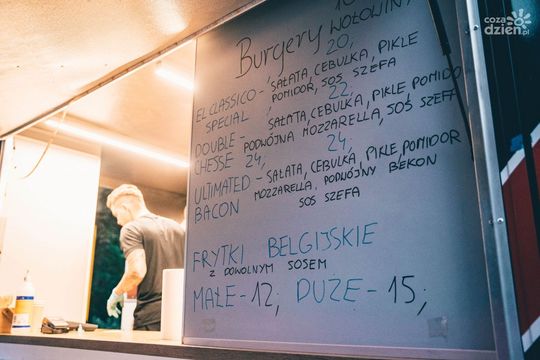 Burgery 10 WOŁOWINY
20,
EL CLASSICO - SAŁATA, CEBULKA, PIKLE
SPECIAL POMIDOR, SOS SZEFA
22,
DOUBLE - SAŁATA, CEBULKA, PIKLE, POMIDO
CHEJSE 24, PODWÓJNA MOZZARELLA, SOS SZEF
24,
ULTIMATED - SAŁATA, CEBULKA, PIKLE, POMIDOR
BACON MOZZARELLA, PODWÓJNY BEKON
SOS SZEFA
FRYTKI BELGIJSKIE
Z DOWOLNYM SOSEM
MAŁE - 12, DUŻE - 15,
coza
dzien.pl